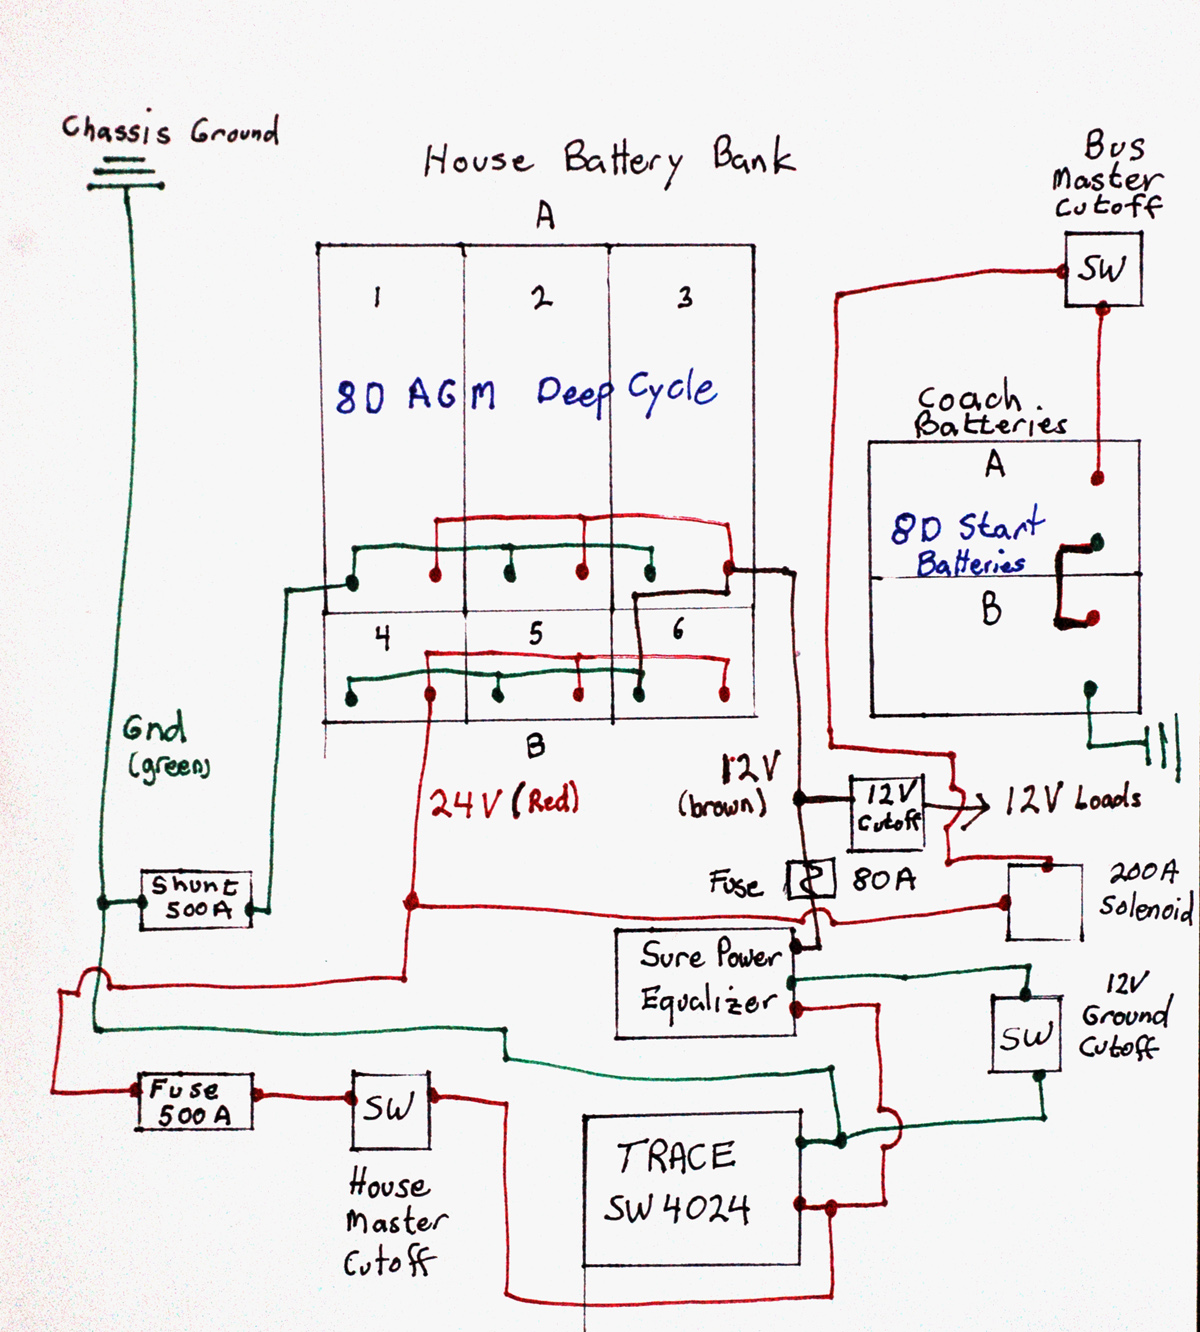 Chassis Ground
House Battery Bank
A
1 2 3
8D AGM Deep Cycle
4 5 6
B
Bus
Master
Cutoff
SW
Coach
Batteries
A
8D Start
Batteries
B
Gnd
(green)
24V (Red)
12V
(brown)
12V
Cutoff
12V Loads
Fuse 80A
200A
Solenoid
Shunt
500A
Sure Power
Equalizer
12V
Ground
Cutoff
SW
Fuse
500A
SW
House
Master
Cutoff
TRACE
SW4024